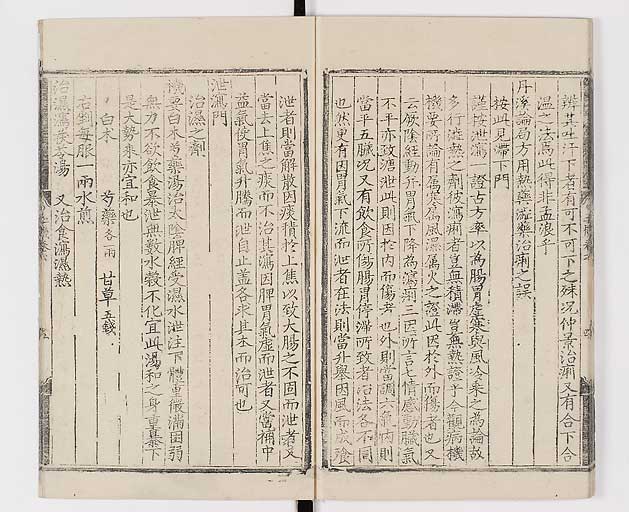 辨其吐汗下者有可不可下之殊况仲景治痢又有合下合
溫之法焉此得非孟浪乎
丹溪論局方用熱藥澁藥治痢之誤
按此見滯下門
謹按泄瀉一證古方率以為腸胃虛寒與風冷乘之為論故
多行澁熱之劑彼瀉痢者豈無積滯豈無熱證乎今觀病機
機要所論有屬寒屬風濕屬火之證此因於外而傷者也又
云厥陰經動升胃氣下降為瀉痢三因所言七情感動臟氣
不平亦致溏泄此則因於內而傷者也外則當調六氣內則
當平五臟况又有飲食所傷腸胃停滯所致者治法各不同
也然更有因胃氣下流而泄者在法則當升舉因風而成飱
泄者則當解散因痰積於上焦以致大腸之不固而泄者又
當去上焦之痰而不治其瀉因脾胃氣虛而泄者又當補中
益氣使胃氣升騰而泄自止蓋各求其本而治可也
泄瀉門
治濕之劑
機要白朮芍藥湯治太陰脾經受濕水泄注下體重微滿困弱
無力不欲飲食暴泄無數水穀不化宜此湯和之身重暴下
是大勢來亦宜和也
白朮 芍藥各一兩 甘草五錢
右剉每服一兩水煎
治濕瀉茯苓湯 又治食瀉濕熱